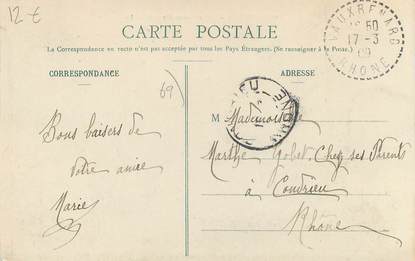 12 €
CARTE POSTALE
La Correspondance en recto n'est pas acceptée par tous les Pays Étrangers. (Se renseigner à la Poste.)
CORRESPONDANCE
ADRESSE
VAUXRENARD
50
17-3
09
RHONE
69)
CONDRIEU
RHONE
Bons baisers de
votre amie
Marie
M Mademoiselle
Marthe Gobet. Chez ses Parents
à Condrieu
Rhône